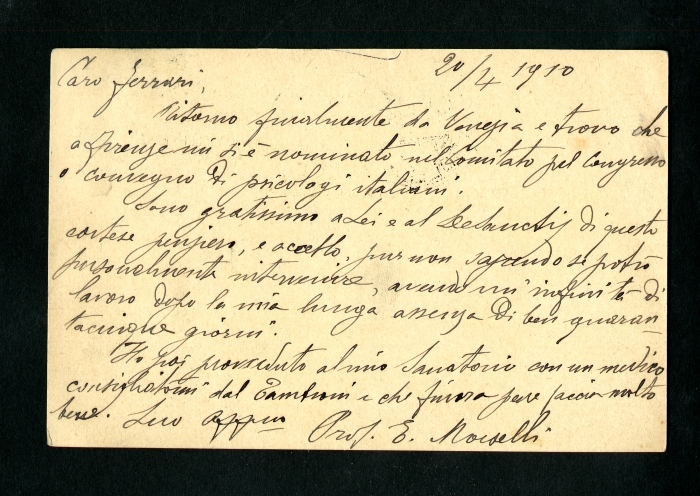 20/4 1910
Caro Ferrari,
Ritorno finalmente da Venezia e trovo che
a Firenze mi si è nominato nel Comitato pel Congresso
o convegno di psicologi italiani.
Sono gratissimo a Lei e al De Sanctis di questo
cortese pensiero, e accetto, pur non sapendo se potrò
personalmente intervenire, avendo un'infinità di
lavoro dopo la mia lunga assenza di ben quaran-
tacinque giorni.
Ho poi provveduto al mio Sanatorio con un medico
consigliatomi dal Tamburini e che finora pare faccia molto
bene. Suo
Prof. E. Morselli